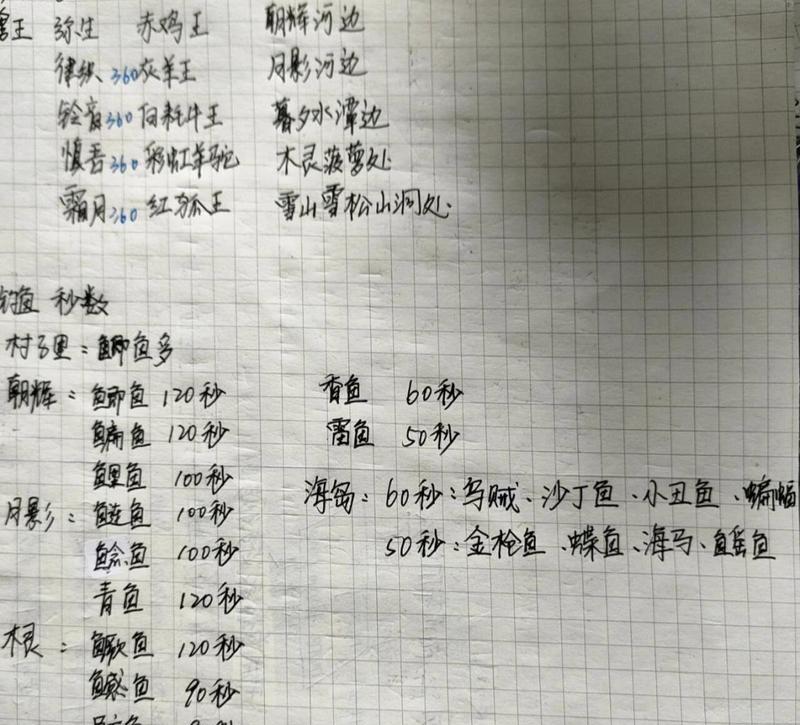 王 弥生 赤鸡王 朝辉河边
律织 360 灰羊王 月影河边
铃音 360 白牦牛王 暮夕水潭边
慎吾 360 彩虹羊驼 木灵菠萝处
霜月 360 红狐王 雪山雪松山洞处
钓鱼 秒数
村子里：鲫鱼多
朝辉：鲫鱼 120秒 香鱼 60秒
鳊鱼 120秒 雷鱼 50秒
鲤鱼 100秒
海钓：60秒：乌贼、沙丁鱼、小丑鱼、蝙蝠
月影：鲢鱼 100秒
鲶鱼 100秒
50秒：金枪鱼、蝶鱼、海马、鳐鱼
青鱼 120秒
木灵：鳜鱼 120秒
鳡鱼 90秒